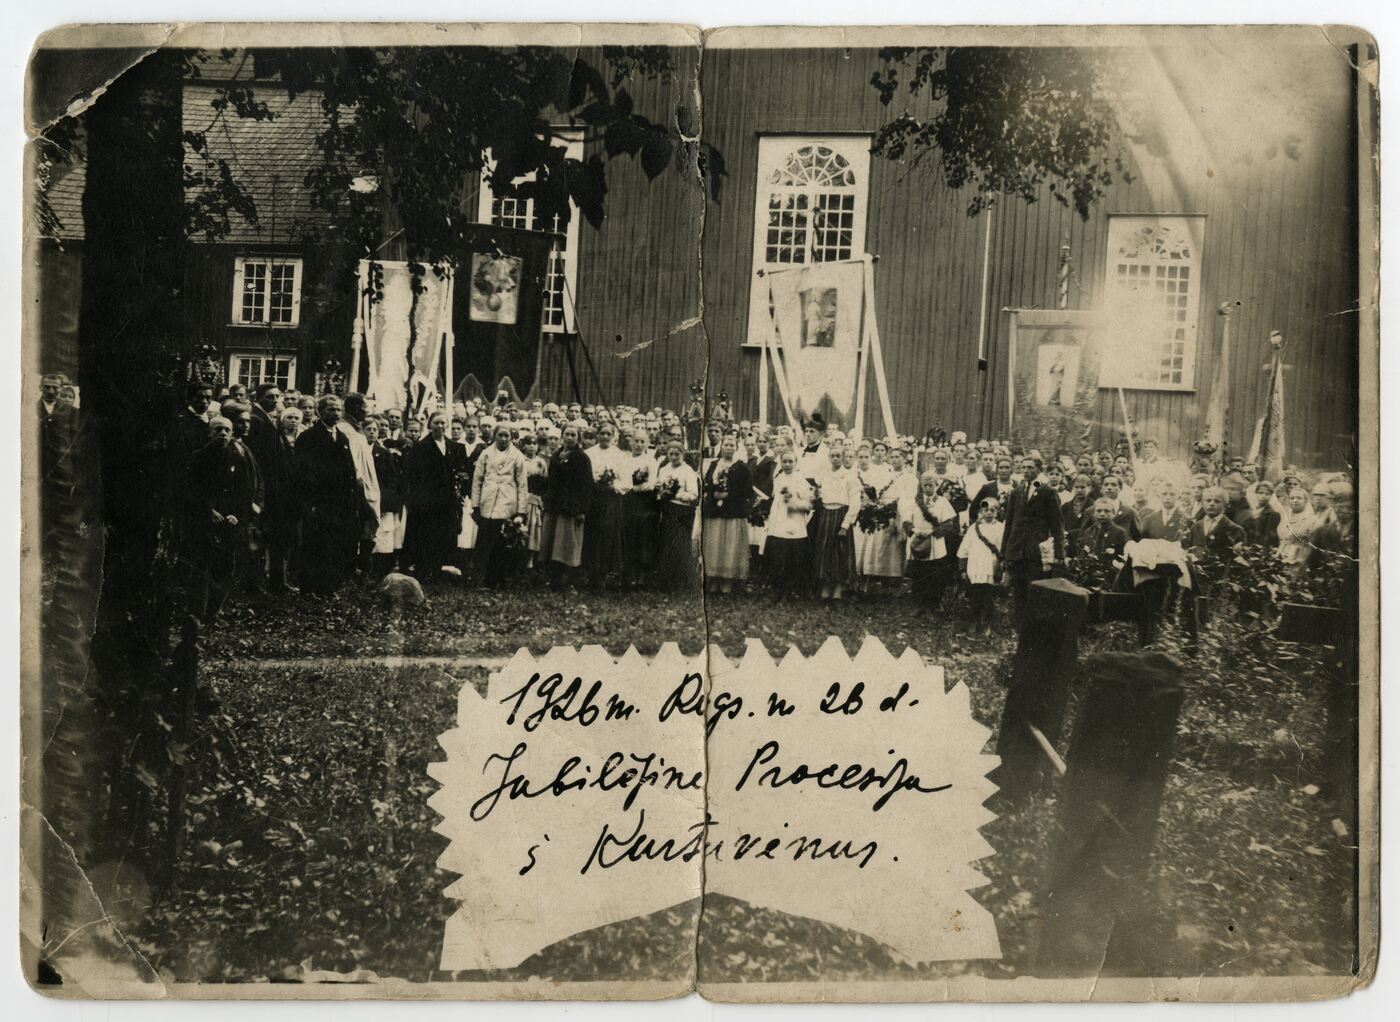 1926 m. Rugs. m 26 d.
Jubilėjinė Procesija
į Kurtuvėnus.